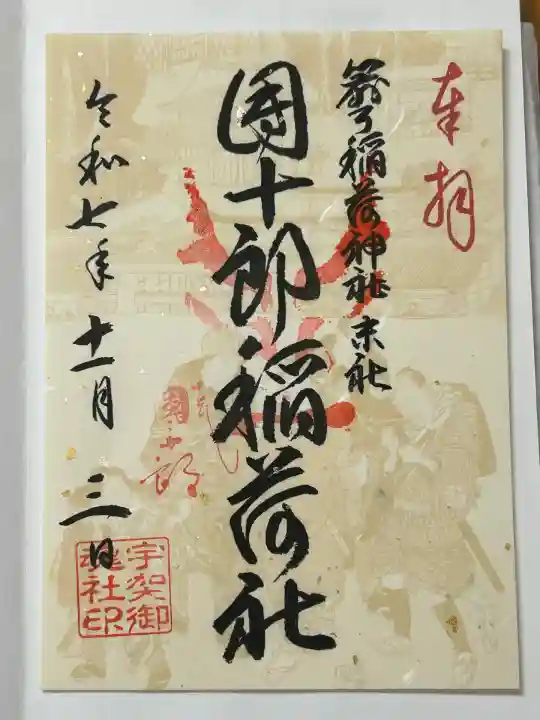 奉拝
箭弓稲荷神社末社
團十郎稲荷社
十二代
團十郎
令和七年十一月三日
宇賀御
魂社印